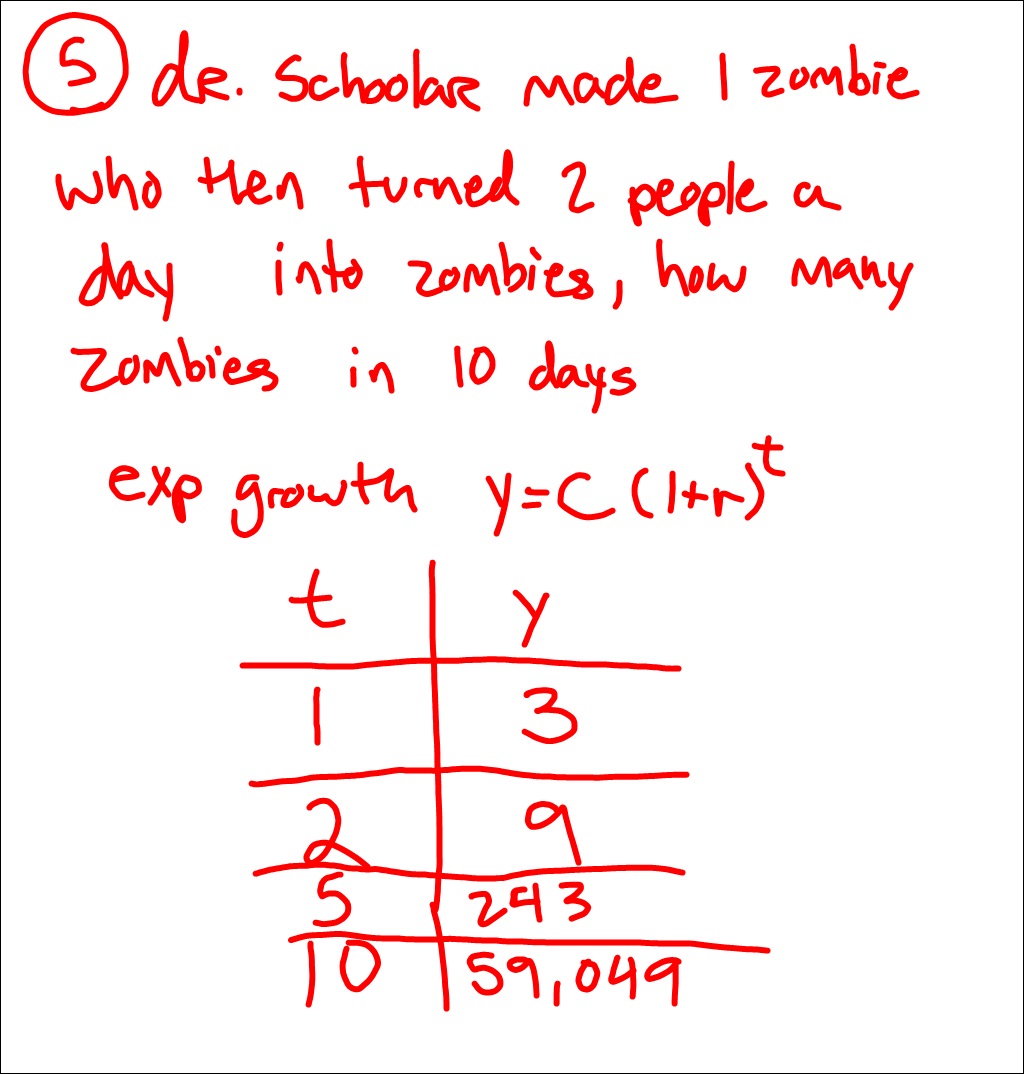 5 dr. Schoolar made 1 zombie
who then turned 2 people a
day into zombies, how many
zombies in 10 days
exp growth y=C(1+r)^t
t y
1 3
2 9
5 243
10 59,049